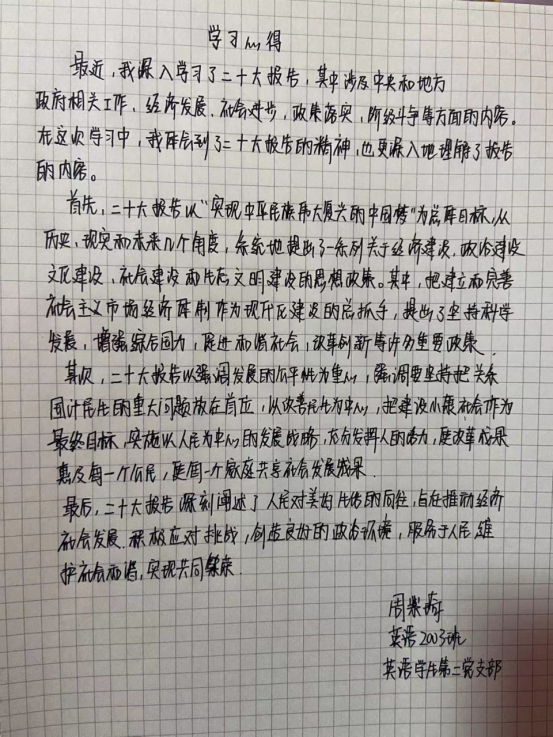 学习心得
最近，我深入学习了二十大报告，其中涉及中央和地方
政府相关工作，经济发展，社会进步，政策落实，阶级斗争等方面的内容。
在这次学习中，我体会到了二十大报告的精神，也更深入地理解了报告
的内容。
首先，二十大报告以“实现中华民族伟大复兴的中国梦”为总体目标，从
历史，现实和未来几个角度，系统地提出了一系列关于经济建设，政治建设
文化建设，社会建设和生态文明建设的思想政策。其中，把建立和完善
社会主义市场经济体制作为现代化建设的总抓手，提出了坚持科学
发展，增强综合国力，促进和谐社会，改革创新等许多重要政策。
其次，二十大报告以强调发展的公平性为重心，强调要坚持把关系
国计民生的重大问题放在首位，以改善民生为中心，把建设小康社会作为
最终目标，实施以人民为中心的发展战略，充分发挥人的潜力，使改革成果
惠及每一个公民，使每一个家庭共享社会发展成果。
最后，二十大报告深刻阐述了人民对美好生活的向往，旨在推动经济
社会发展，积极应对挑战，创造良好的政治环境，服务于人民，维
护社会和谐，实现共同繁荣。
英语2003班
英语学生第二党支部